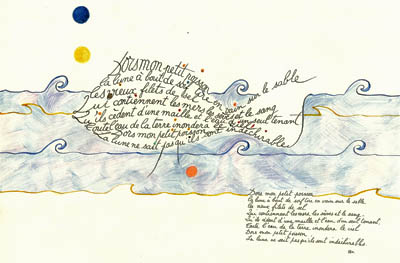 Dors mon petit poisson
la lune à bout de tire en vain sur le sable
les vieux filets de sel
qui contiennent les mers les sèves et le sang
Qu'ils cèdent d'une maille et l'eau d'un seul tenant
toute l'eau de la terre inondera le ciel
Dors mon petit poisson
La lune ne sait pas qu'ils sont indéchirables
Dors mon petit poisson
la lune à bout de tire en vain sur le sable
les vieux filets de sel
qui contiennent les mers, les sèves et le sang
Qu'ils cèdent d'une maille et l'eau d'un seul tenant
toute l'eau de la terre inondera le ciel
Dors mon petit poisson
La lune ne sait pas qu'ils sont indéchirables.